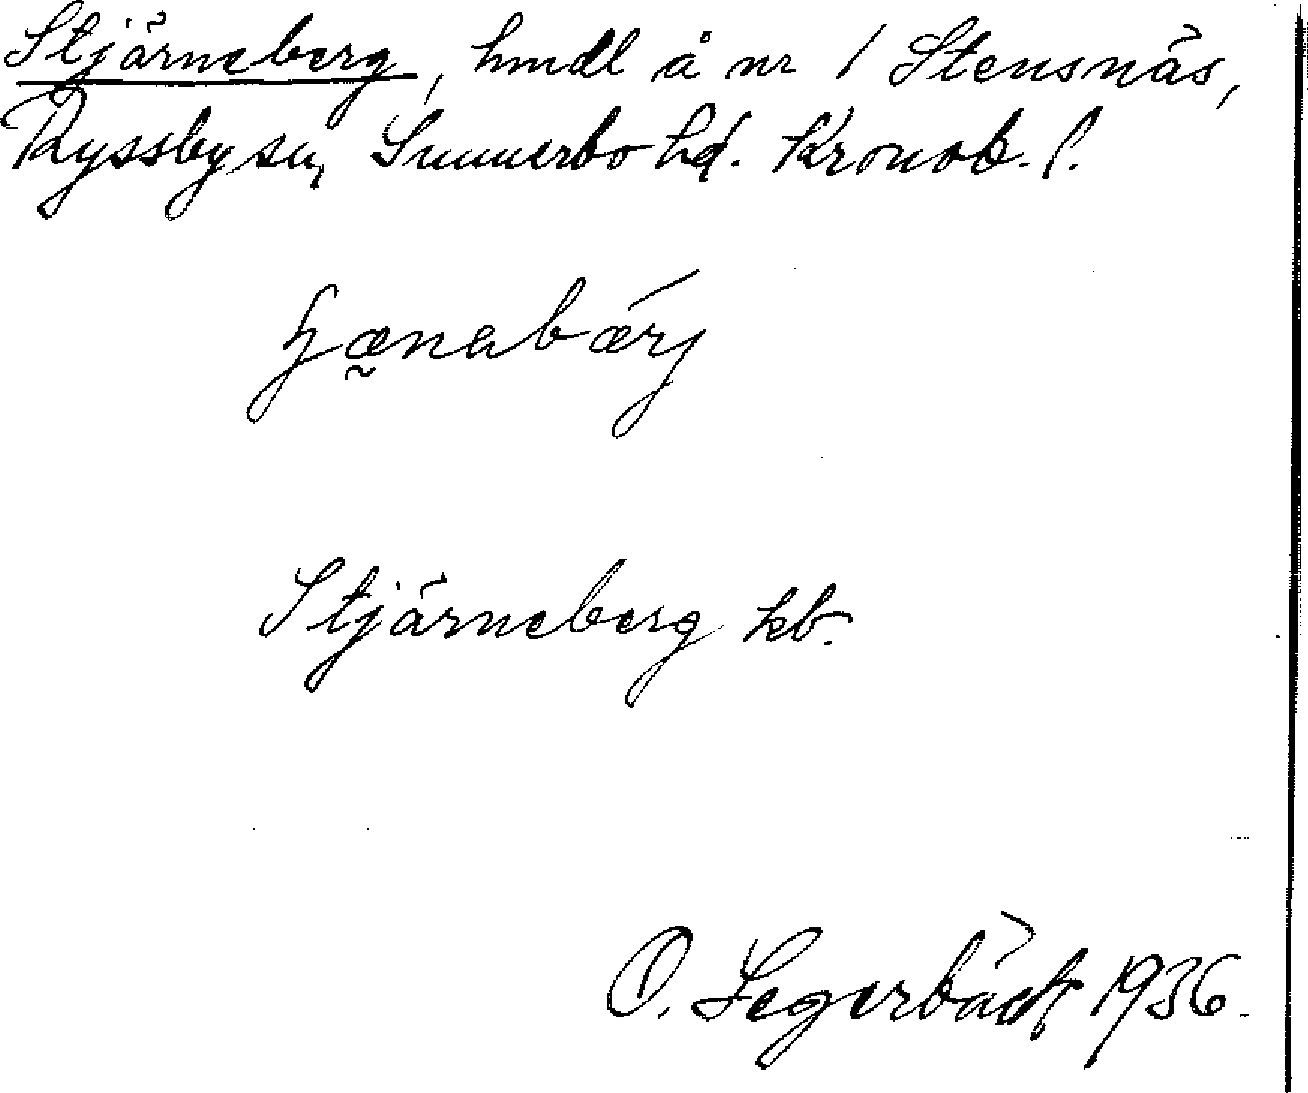 Stjärneberg, hmdl å nr 1 Stensnäs,
Ryssby sn, Sunnerbo hd. Kronob. l.
ɧæ̰nabærj
Stjärneberg kb.
O. Segerbäck 1936.